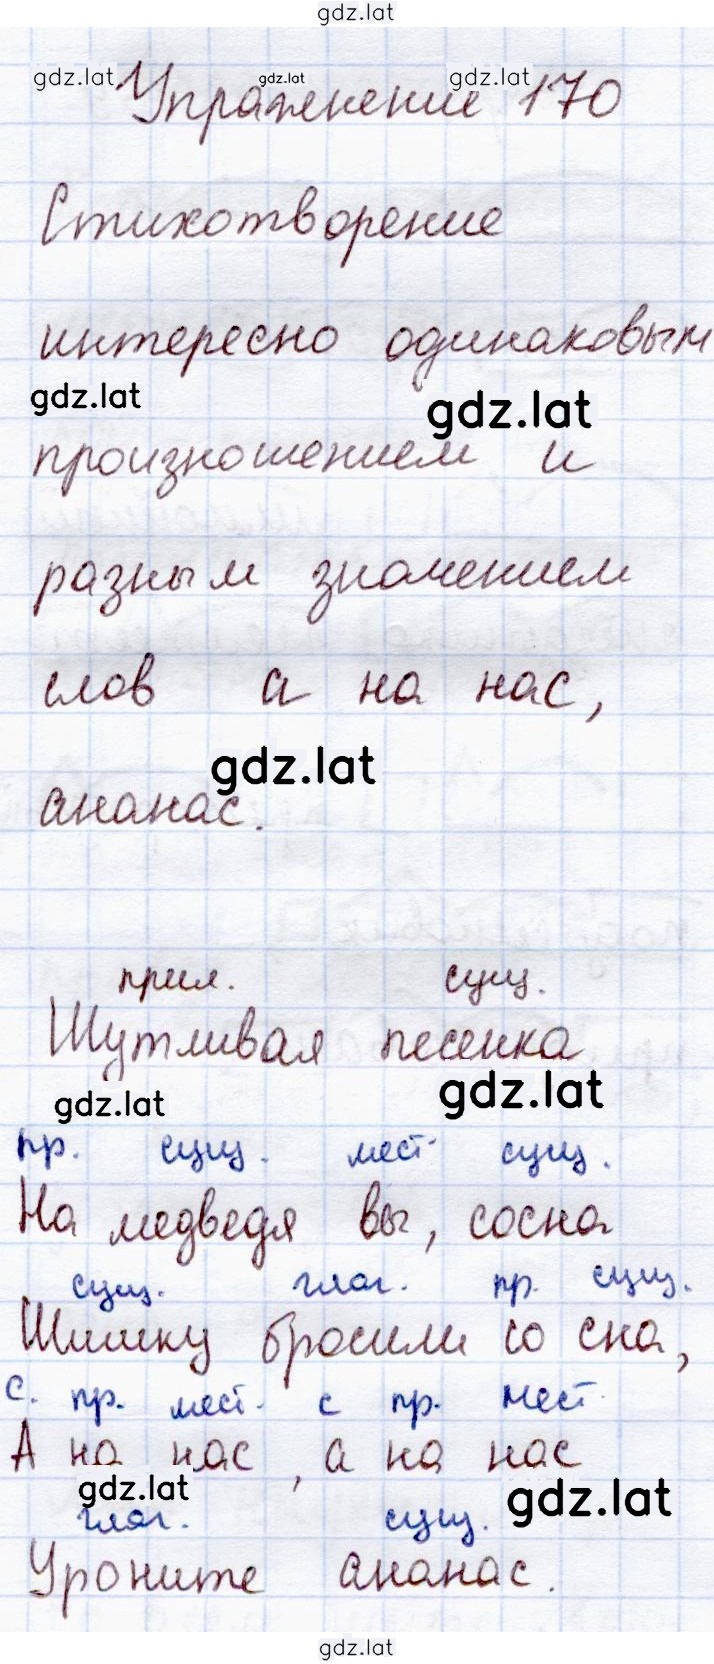 gdz.lat
gdz.lat gdz.lat gdz.lat
Упражнение 170
Стихотворение
интересно одинаковым
gdz.lat gdz.lat
произношением и
разным значением
слов а на нас,
gdz.lat
ананас.
прил. сущ.
Шутливая песенка
gdz.lat gdz.lat
пр. сущ. мест. сущ.
На медведя вы, сосна
сущ. глаг. пр. сущ.
Шишку бросили со сна,
с. пр. мест. с пр. мест.
А на нас, а на нас
gdz.lat gdz.lat
глаг. сущ.
Уроните ананас.
gdz.lat